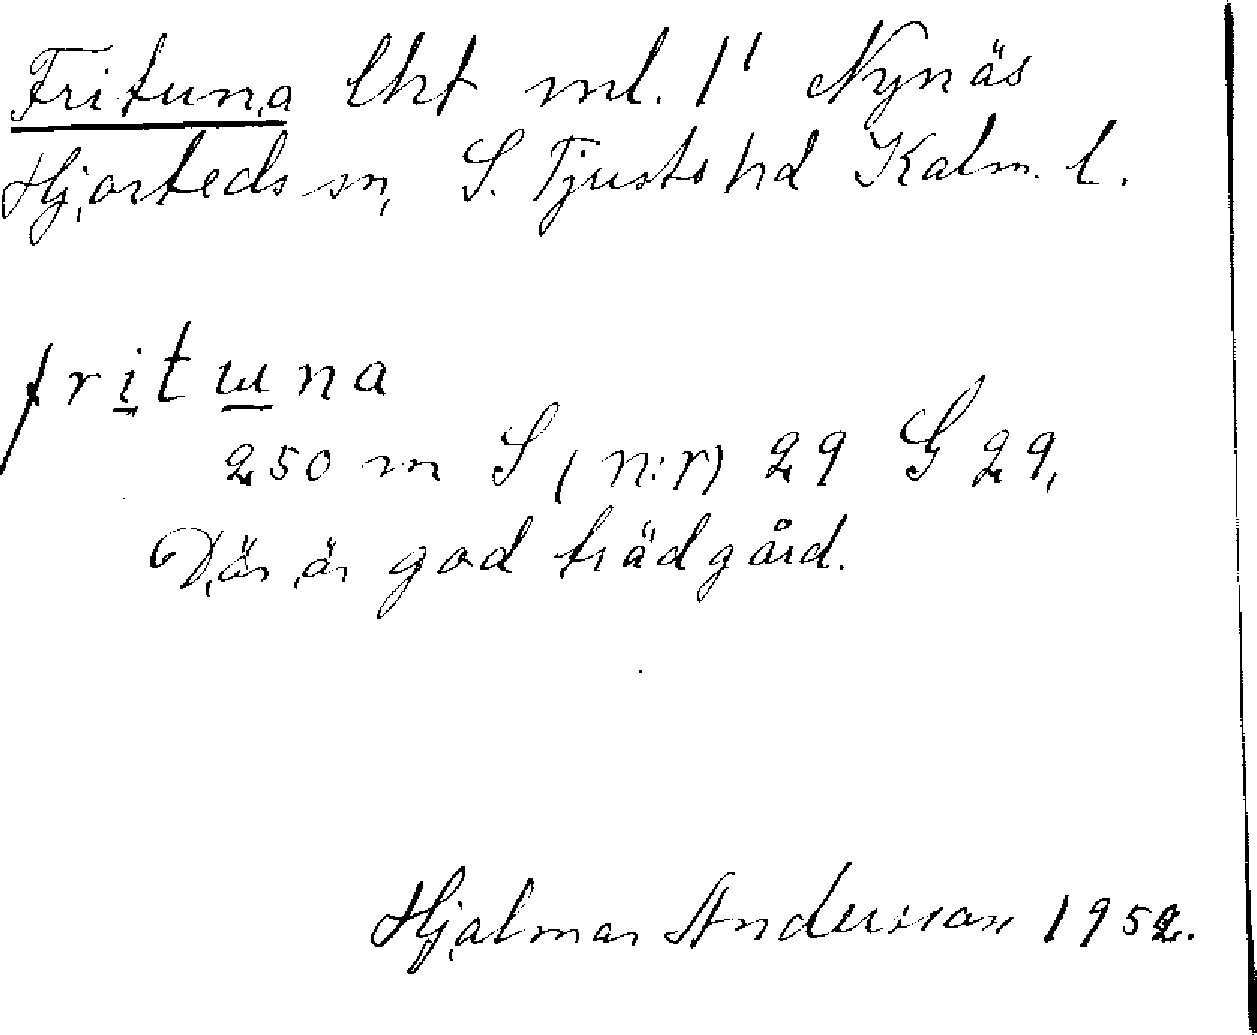 Frituna lht ml. 1' Nynäs
Hjorteds sn, S. Tjusts hd Kalm. l.
fritɯna
250 m S (n:r) 29 G 29,
Där är god trädgård.
Hjalmar Andersson 1952.